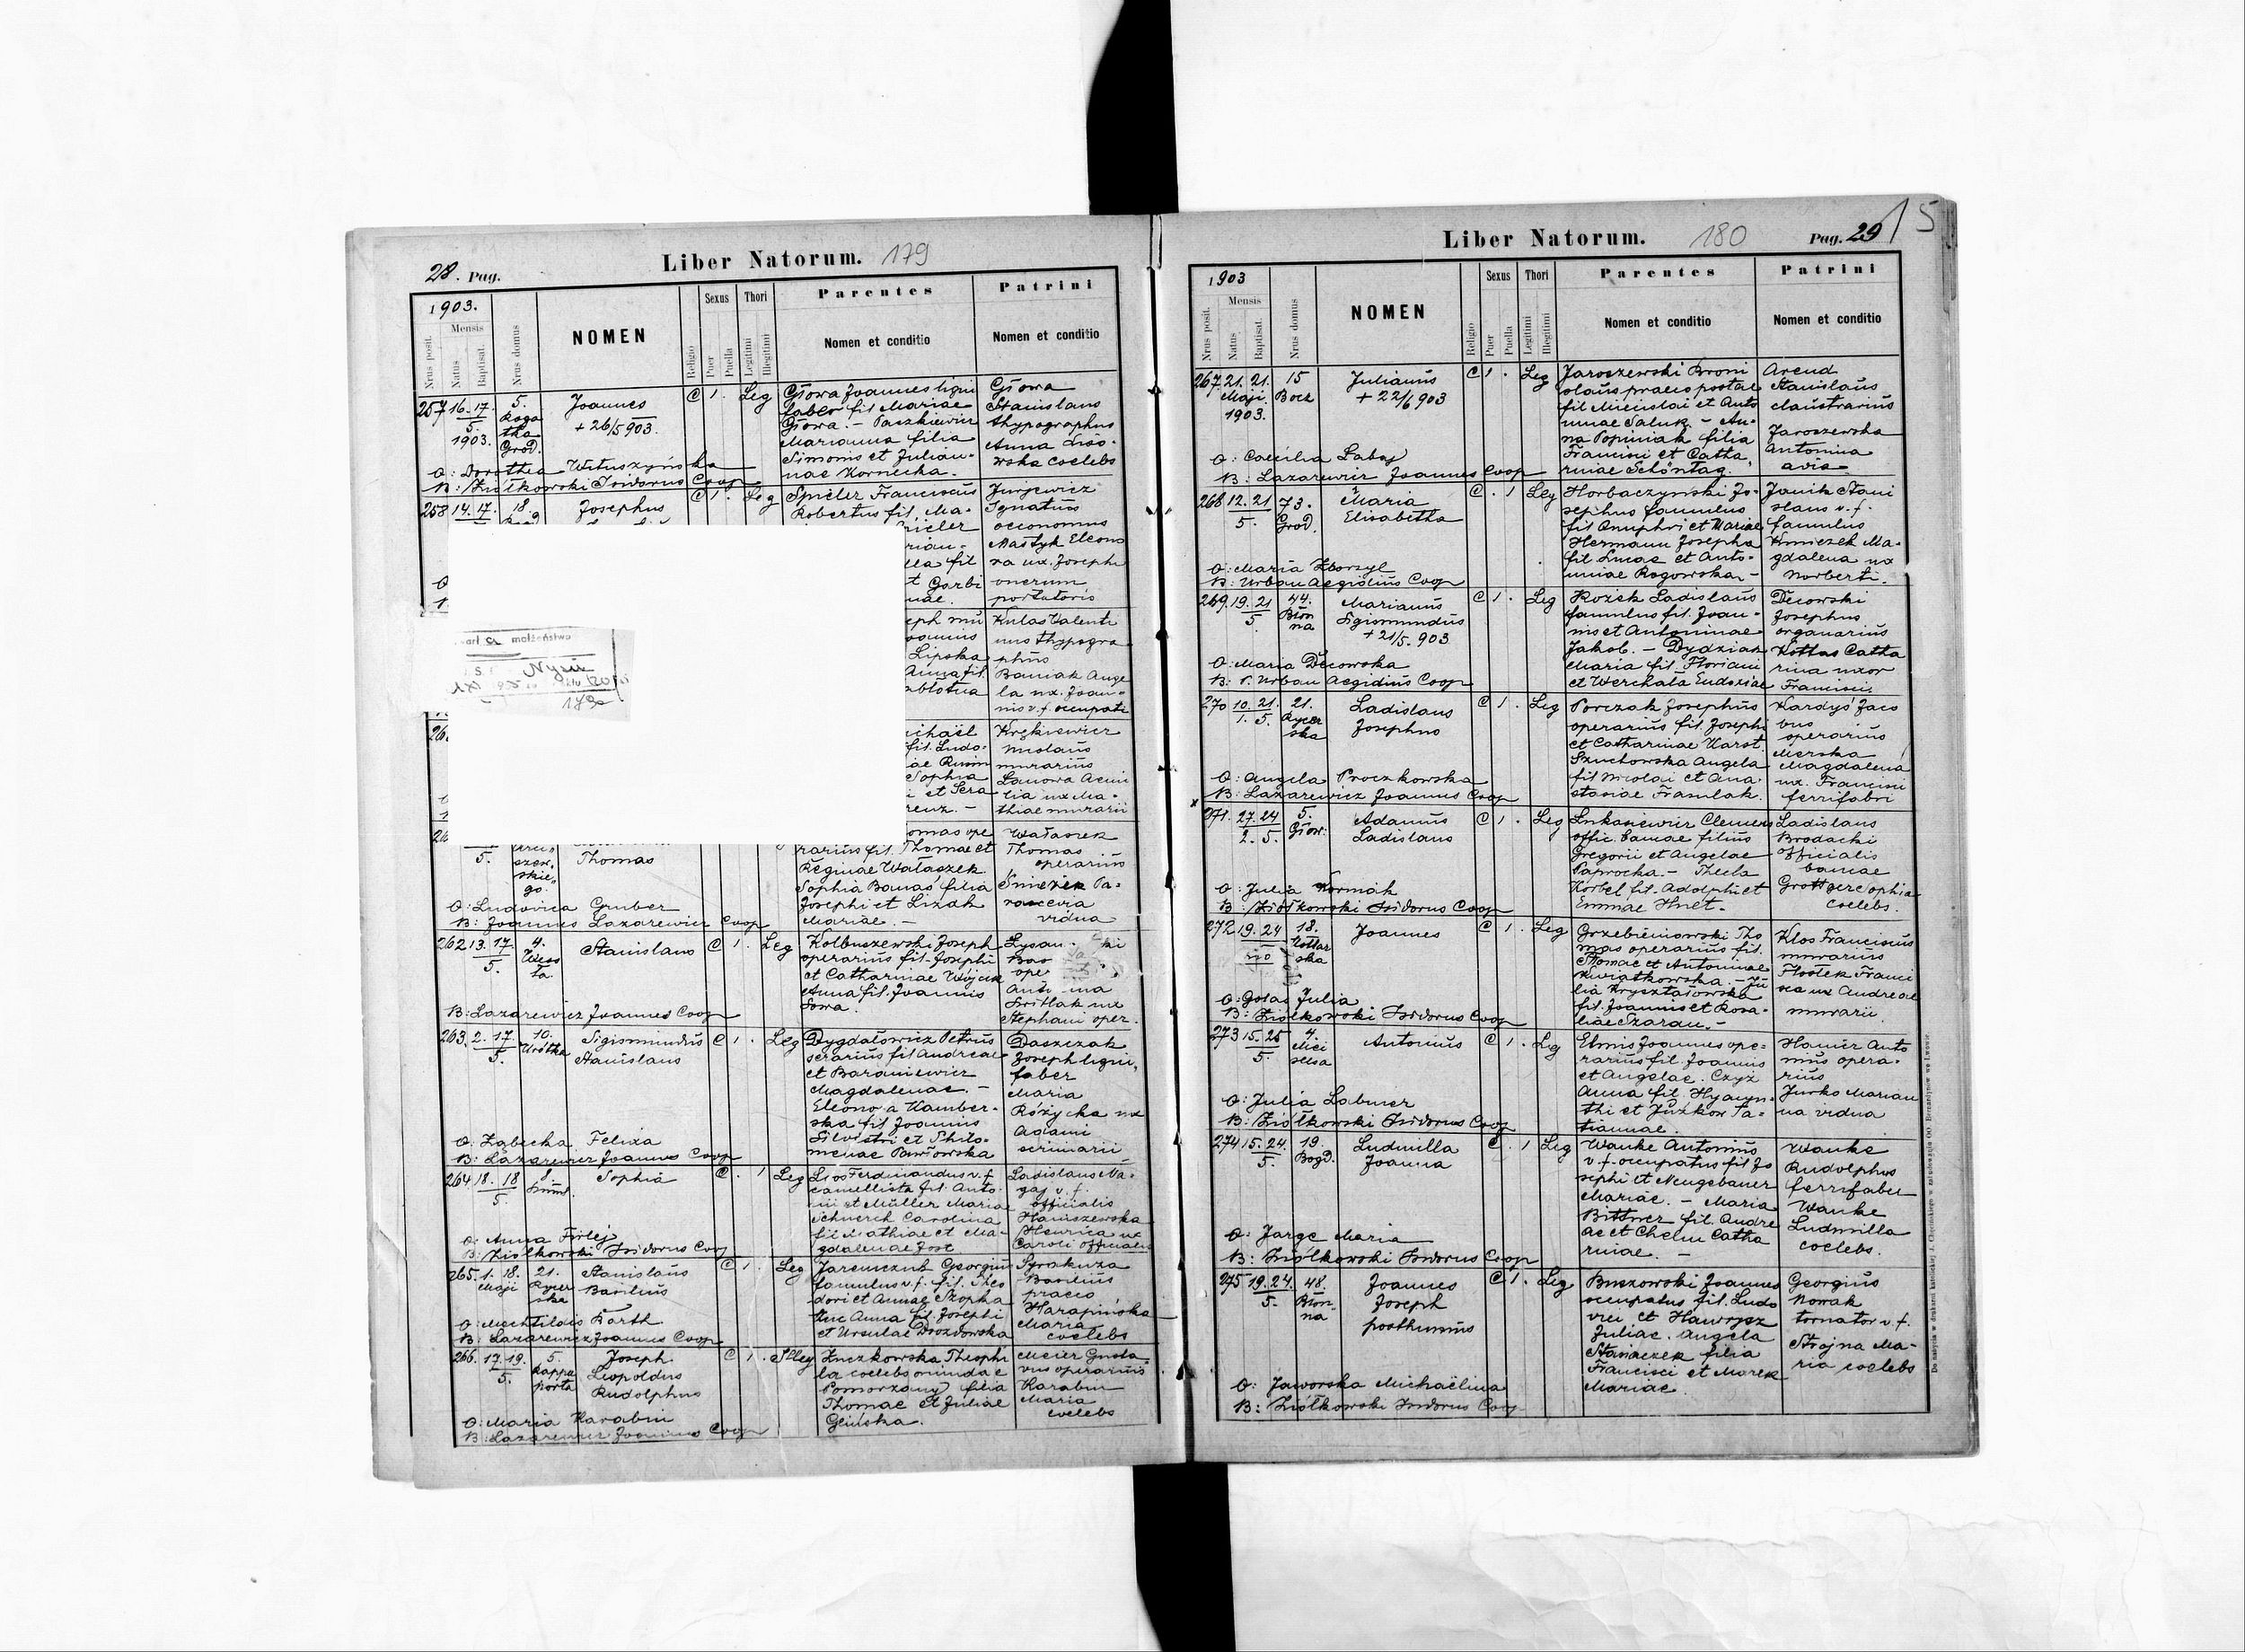 28. Pag.
Liber Natorum. 179
1903.
Nrus posit.
Mensis
Natus
Baptisat.
Nrus domus
NOMEN
Religio
Sexus
Puer
Puella
Thori
Legitimi
Illegitimi
Parentes
Nomen et conditio
Patrini
Nomen et conditio
257 16. 17. 5. 1903.
5. Roga
tka
Grod.
Joannes
+ 26/5 903.
C 1. Leg
Głowa Joannes ligni
faber fil Mariae
Głowa. - Paszkiewicz
Marianna filia
Simonis et Julian-
nae Kornecka.
Głowa
Stanislaus
thypographus
Anna Liso-
wska coelebs
O: Dorothea Wituszyńska
B: Ziółkowski Isidorus Coop
258 14. 17.
18.
Josephus
C 1. Leg
Spieler Franciscus
Robertus fil. Ma-
Jurjewicz
Ignatius
oeconomus
Mastyk Eleono
ra ux. Josephi
onerum
portatoris
Kulas Valenti
nus thypogra
phus
Baniak Ange
la ux. Joan-
nis v. f. occupati
małżeństwo
Nysie
Krękiewicz
Nicolaus
murarius
Lanowa Aemi
lia ux Ma-
thiae murarii
5.
szew-
skie-
go.
Thomas
omas ope
rarius fil. Thomae et
Reginae Wataszek.
Sophia Banas filia
Josephi et Lizak
Mariae. -
Wataszek
Thomas
operarius
Śnieżek Pa-
rascevia
vidua
O: Ludovica Gruber
B: Joannes Lazarewicz Coop
262 13. 17. 5.
4.
Weso
ła
Stanislaus
C 1. Leg
Kolbuszewski Joseph
operarius fil. Josephi
et Catharinae Wójcik
Anna fil. Joannis
Sowa.
Switlak ux
Stephani oper.
B: Lazarewicz Joannes Coop
263. 2. 17. 5.
10.
Krótka
Sigismundus
Stanislaus
C 1. Leg
Dygdałowicz Petrus
serarius fil Andreae
et Baraniewicz
Magdalenae. -
Eleonora Kamber-
ska fil Joannis
Silvestri et Philo-
menae Pawłowska
Daszczak
Joseph ligni,
faber
Maria
Różycka ux
Adami
scriniarii
O: Ząbecka Felixa
B: Lazarewicz Joannes Coop
264 18. 18 5
Sophia
C. 1 Leg
Lios Ferdinandus v. f.
camellista fil. Anto-
nii et Müller Mariae
Schnerch Carolina
fil Mathiae et Ma-
gdalenae Jost
Ladislaus Na-
gaj v. f.
officialis
Haniszewska
Henrica ux
Caroli officialis
O: Anna Firlej
B: Ziółkowski Isidorus Coop
265. 1. 18.
Maji
21.
Rycer
ska
Stanislaus
Basilius
C 1. Leg
Jaremczuk Georgius
famulus v. f. fil. Theo
dori et Annae Szopka
Anna fil. Josephi
et Ursulae Drozdowska
Syrokuza
Basilius
praeco
Harapińska
Maria
coelebs
O: Mechtildis Barth
B: Lazarewicz Joannes Coop
266. 17. 19. 5.
5.
Rappa
porta
Joseph
Leopoldus
Rudolphus
C 1. Illeg
Kuczkowska Theophi
la coelebs oriunda e
Pomorzany filia
Thomae et Juliae
Glińska.
Meier Gusta-
vus operarius
Karabin
Maria
coelebs
O: Maria Karabin
B: Lazarewicz Joannes Coop
Liber Natorum. 180
Pag. 29
15
1903
Nrus posit.
Mensis
Natus
Baptisat.
Nrus domus
NOMEN
Religio
Sexus
Puer
Puella
Thori
Legitimi
Illegitimi
Parentes
Nomen et conditio
Patrini
Nomen et conditio
267 21. 21.
Maji
1903.
15
Bocz
Julianus
+ 22/6 903
C 1. Leg
Jaroszewski Broni
slaus praeco postae
fil Mieczslai et Anto
ninae Saluk. - An-
na Popiniak filia
Francisci et Catha-
rinae Schöntag.
Arend
Stanislaus
claustrarius
Jaroszewska
Antonina
avia
O: Coecilia Labaj
B: Lazarewicz Joannes Coop
268 12. 21 5.
73.
Grod.
Maria
Elisabetha
C. 1 Leg
Horbaczynski Jo-
sephus famulus
fil Onuphri et Mariae
Hermann Josepha
fil Lucae et Anto-
ninae Rogowska -
Janik Stani
slaus v. f.
famulus
Kmieczek Ma-
gdalena ux
Norberti.
O: Maria Zborzyl
B: Urban Aegidius Coop
269. 19. 21 5
44.
Błon
na
Marianus
Sigismundus
+ 21/5. 903
C 1. Leg
Kozek Ladislaus
famulus fil. Joan-
nis et Antoninae
Jakob. - Dydziak
Maria fil. Floriani
et Werchala Eudoxiae
Decowski
Josephus
organarius
Kottas Catha
rina uxor
Francisci.
O: Maria Decowska
B: P. Urban Aegidius Coop
270 10. 21. 1. 5.
21.
Rycer
ska
Ladislaus
Josephus
C 1. Leg
Porczak Josephus
operarius fil. Josephi
et Catharinae Karst.
Szuchowska Angela
fil Nicolai et Ana-
stasiae Framlak.
Kardyś Jaco
bus
operarius
Merska
Magdalena
ux. Francisci
ferrifabri
O: Angela Proczkowska
B: Lazarewicz Joannes Coop
271. 27. 24 2. 5.
5.
Głow.
Adamus
Ladislaus
C 1. Leg
Lukasiewicz Clemens
offic. bancae filius
Gregorii et Angelae
Paprocka. - Thecla
Korbel fil. Adolphi et
Emmae Hnet.
Ladislaus
Brodacki
officialis
bancae
Grottger Sophia
coelebs.
O: Julia Kormák
B: Ziółkowski Isidorus Coop
272 19. 24
18.
Kotlar
ska
Joannes
C 1. Leg
Grzebieniowski Tho
mas operarius fil.
Thomae et Antoninae
Kwiatkowska. - Ju
lia Kryształowska
fil. Joannis et Rosa-
liae Szaran. -
Klos Franciscus
murarius
Flostek Franci
sca ux Andreae
murarii.
O: Golas Julia
B: Ziółkowski Isidorus Coop
273 15. 25 5.
4.
Mici
selsa
Antonius
C 1. Leg
Elmis Joannes ope-
rarius fil. Joannis
et Angelae. Czyż
Anna fil. Hyacyn-
thi et Juźkow Ta-
tiannae.
Hamer Anto
nius opera-
rius
Jurko Marian
na vidua
O: Julia Labmer
B: Ziółkowski Isidorus Coop
274 15. 24. 5.
19.
Bogd.
Ludmilla
Joanna
C. 1 Leg
Wanke Antonius
v. f. occupatus fil Jo
sephi et Neugebauer
Mariae. - Maria
Bittner fil. Andre
ae et Chelm Catha
rinae. -
Wanke
Rudolphus
ferrifaber
Wanke
Ludmilla
coelebs.
O: Jarge Maria
B: Ziółkowski Isidorus Coop
275 19. 24. 5.
48.
Błon-
na
Joannes
Joseph
posthumus
C 1. Leg
Buszowski Joannes
occupatus fil. Ludo
vici et Hawrysz
Juliae. Angela
Staniaczek filia
Francisci et Marek
Mariae.
Georgius
Nowak
tornator v. f.
Strojna Ma-
ria coelebs
O: Jaworska Michaëlina
B: Ziółkowski Isidorus Coop